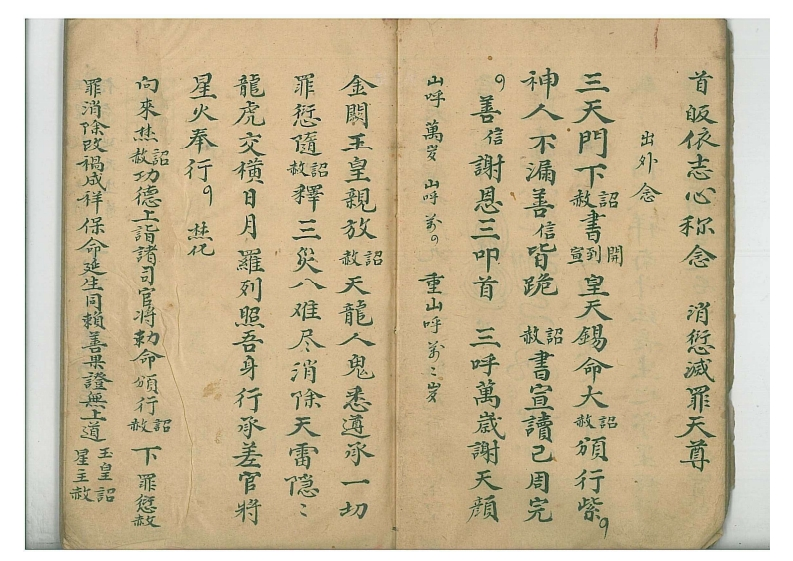 首皈依志心称念 消愆滅罪天尊
出外念
三天門下赦詔書宣到開皇天錫命大赦詔頒行紫
神人不漏善信皆跪赦詔書宣讀已周完
善信謝恩三叩首 三呼萬歲謝天顏
山呼 萬岁 山呼 重山呼
金闕玉皇親放赦詔天龍人鬼悉遵承一切
罪愆隨赦詔釋三災八难尽消除天雷隐〻
龍虎交橫日月羅列照吾身行承差官將
星火奉行 焚化
向來焚赦詔功德上詣諸司官將勅命頒行赦詔下 罪愆赦
罪消除改禍成祥保命延生同賴善果證無上道 玉皇詔 星主赦